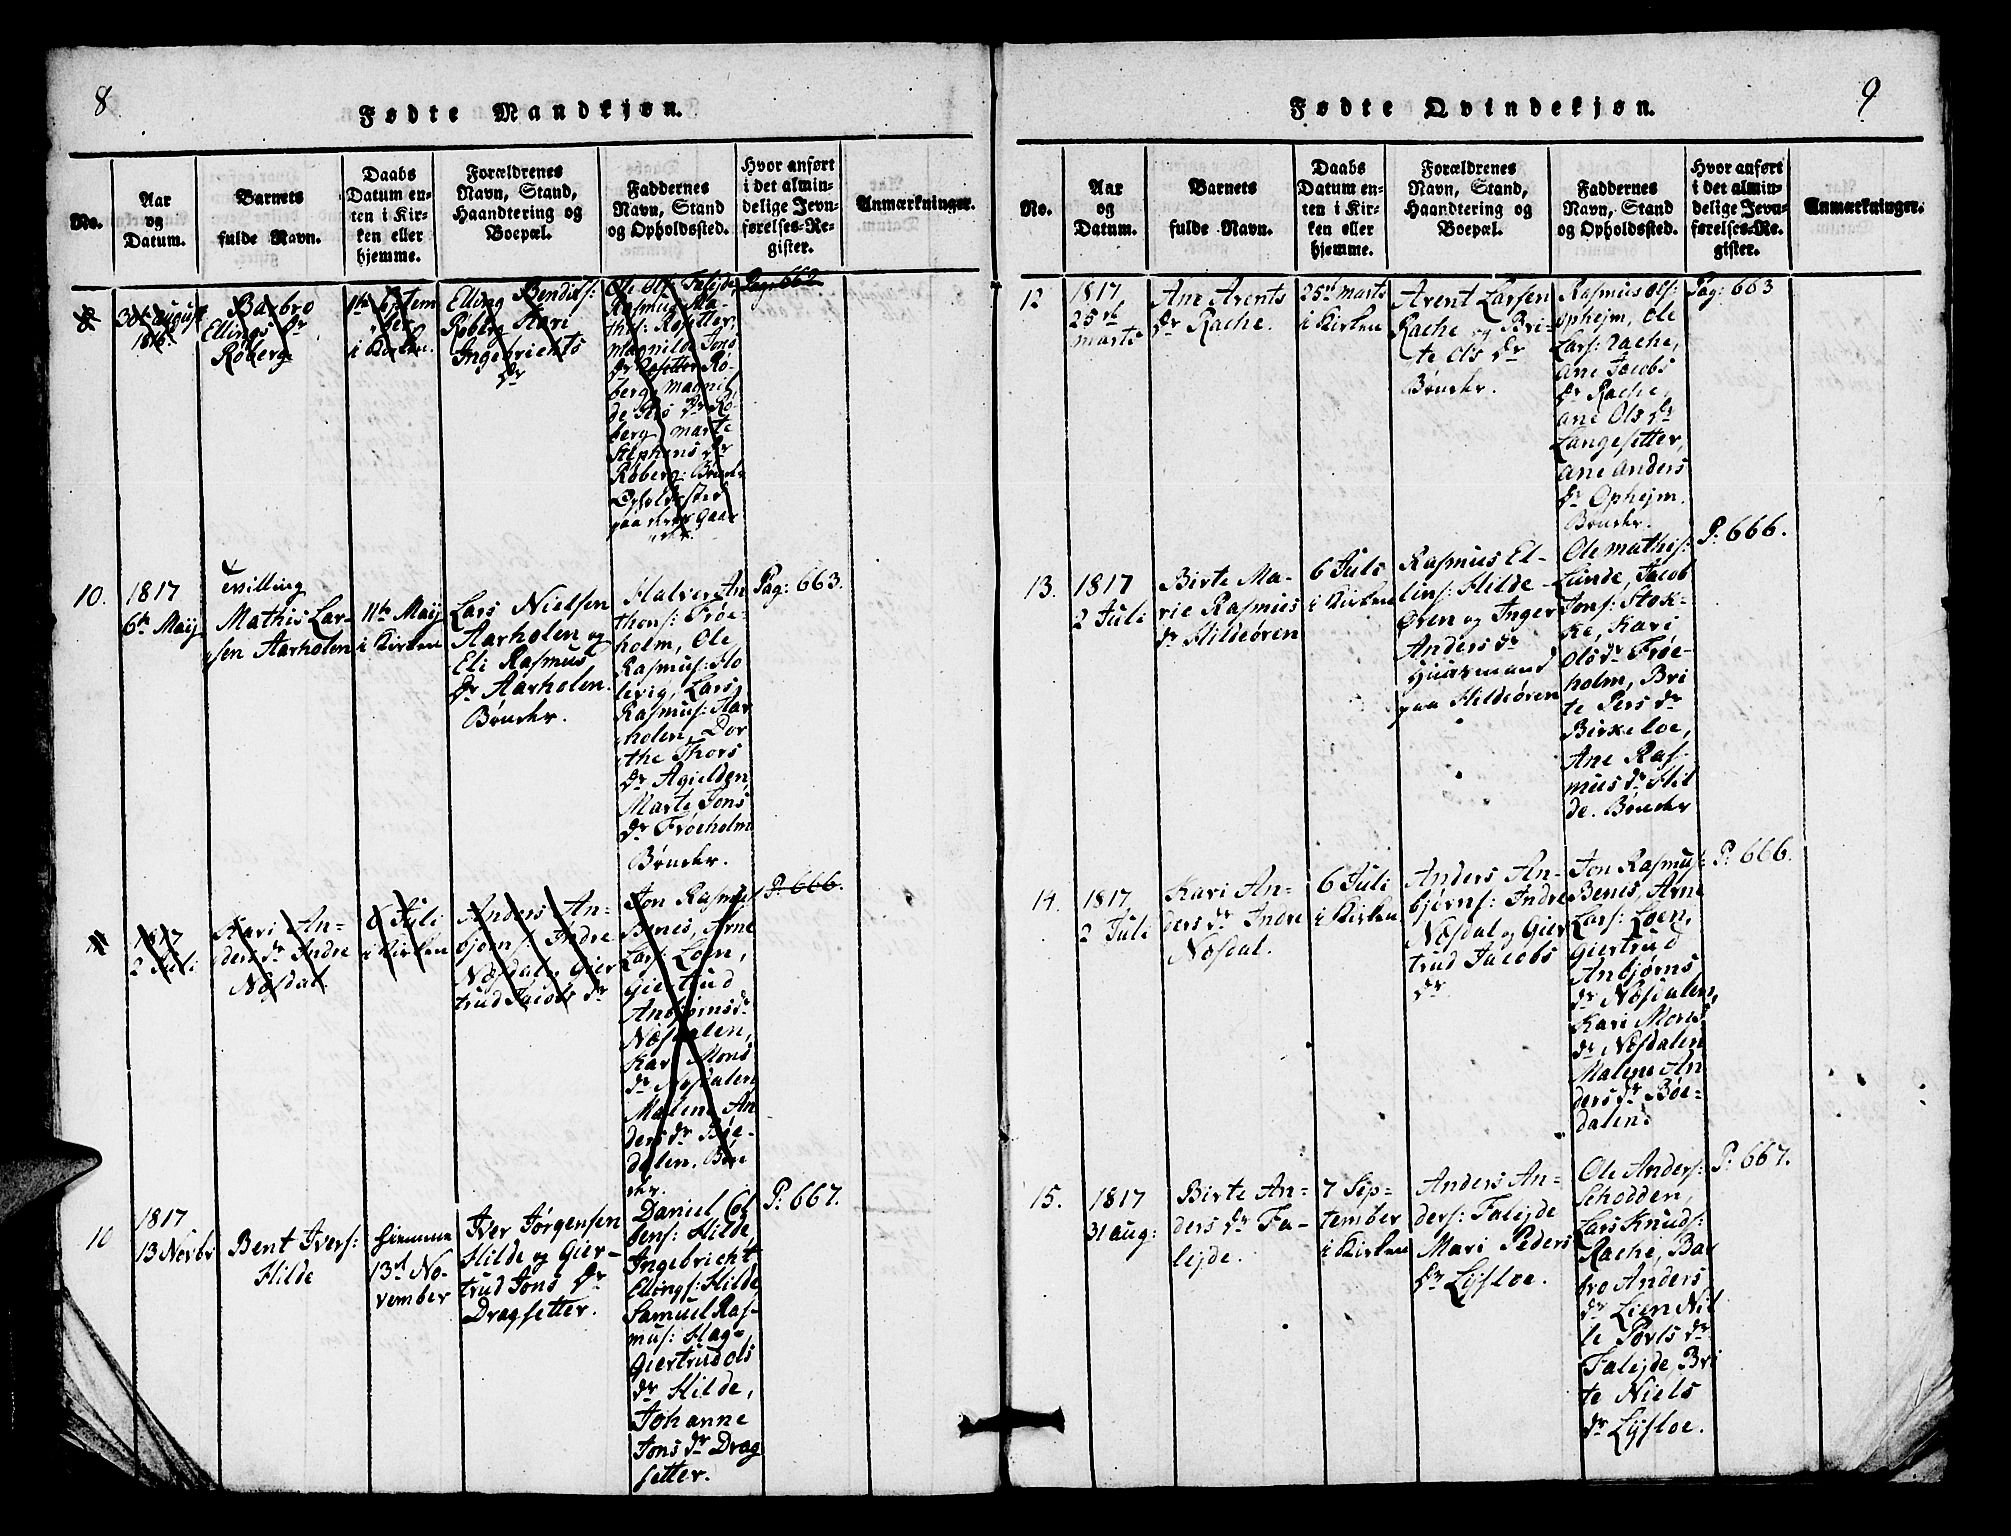 8
Fødte Mandkjøn.
No.
Aar
og
Datum.
Barnets
fulde Navn.
Daabs
Datum en-
ten i Kir-
ken eller
hjemme.
Forældrenes
Navn, Stand,
Haandtering og
Boepæl.
Faddernes
Navn, Stand
og Opholdssted.
Hvor anført
i det almin-
delige Jevn-
førelses-Re-
gister.
Anmærkninger.
30te august
1816.
Barbro
Ellings Dr
Røberg
i Kirken.
Elling Bendix:
Røberg Kari
Ingebrichts
Dr
Ole Ols: Falejde
Rasmus Ma-
this: Røsetter,
Magnilde Jons
Dr Røsetter Rø-
berg, Magnil
de Ols Dr Rø-
berg, Marte
Stephens Dr
Røberg: Bønder
Pag: 662
10.
1817
6te Maij
Tvilling
Mathis Lar-
sen Aarholen
11te Maij
i Kirken
Lars Nielsen
Aarholen og
Eli Rasmus
Dr Aarholen.
Bønder.
Halver An
thons: Frøe-
holm, Ole
Rasmus: Ho
levig, Lars
Rasmus: Aar
holen, Dor
the Thors
Dr Agielden,
Marte Jons
Dr Frøeholm
Bønder.
Pag: 663.
11
1817
2 Juli
Kari An-
ders Dr Indre
Nøsdal.
6 Juli
i Kirken
Anders An-
bjørns: Indre
Nøsdal, Gier
trud Jacobs Dr
Jon Rasmus:
Benes, Arne
Lars: Loen,
Giertrud
Anbjørns Dr
Nøsdalen,
Kari Mons
Dr Nøsdalen
Malene An
ders Dr Bøe-
dalen. Bøn
der.
P: 666.
10
1817
13 Novbr
Bent Ivers:
Hilde
hiemme
13de No-
vember
Iver Jørgensen
Hilde og Gier-
trud Jons Dr
Dragsetter.
Daniel Col
bens: Hilde,
Ingebricht
Ellings: Hilde
Samuel Ras-
mus: Hage
Giertrud Ols
Dr Hilde,
Johanne
Jons Dr Drag
setter.
P: 667.
9
Fødte Qvindekjøn.
No.
Aar
og
Datum.
Barnets
fulde Navn.
Daabs
Datum en-
ten i Kir-
ken eller
hjemme.
Forældrenes
Navn, Stand,
Haandtering og
Boepæl.
Faddernes
Navn, Stand
og Opholdssted.
Hvor anført
i det almin-
delige Jevn-
førelses-Re-
gister.
Anmærkninger.
12
1817,
25de
marts
Ane Arents
Dr Rache.
25de marts
i Kirken
Arent Larsen
Rache og Bri-
te Ols Dr
Bønder.
Rasmus Ols:
Ophejm, Ole
Lars: Rache,
Ane Jacobs
Dr Rache,
Ane Ols Dr
Langesetter,
Ane Anders
Dr Ophejm.
Bønder.
Pag: 663
13.
1817
2 Juli
Birte Ma-
rie Rasmus
Dr Hildeøren
6 Juli
i Kirken
Rasmus El-
lins: Hilde
Øren og Inger
Anders Dr
Huusmand
paa Hildeøren
Ole Mathis:
Lunde, Jacob
Jons: Stok-
ke, Kari
Ols Dr Frøe-
holm, Bri
te Pers Dr
Birkeloe,
Ane Ras-
mus Dr Hil
de. Bønder
P: 666.
14.
1817,
2 Juli
Kari An-
ders Dr Indre
Nøsdal.
6 Juli
i Kirken
Anders An-
bjørns: Indre
Nøsdal og Gier
trud Jacobs
Dr
Jon Rasmus:
Benes, Arne
Lars: Loen,
Giertrud
Anbjørns
Dr Nøsdalen,
Kari Mons
Dr Nøsdalen
Malene An
ders Dr Bøe-
dalen.
P: 666.
15.
1817
31 aug:
Birte An-
ders Dr Fa-
lejde.
7 Sep-
tember
i Kirken
Anders An-
ders: Falejde
Mari Peders
Dr Lyfloe.
Ole Anders:
Schodden,
Lars Knuds:
Rache, Bar
bro Anders
Dr Loen Nil
le Pørls Dr
Falejde, Bri
te Niels
Dr Lyfloe.
P: 667.